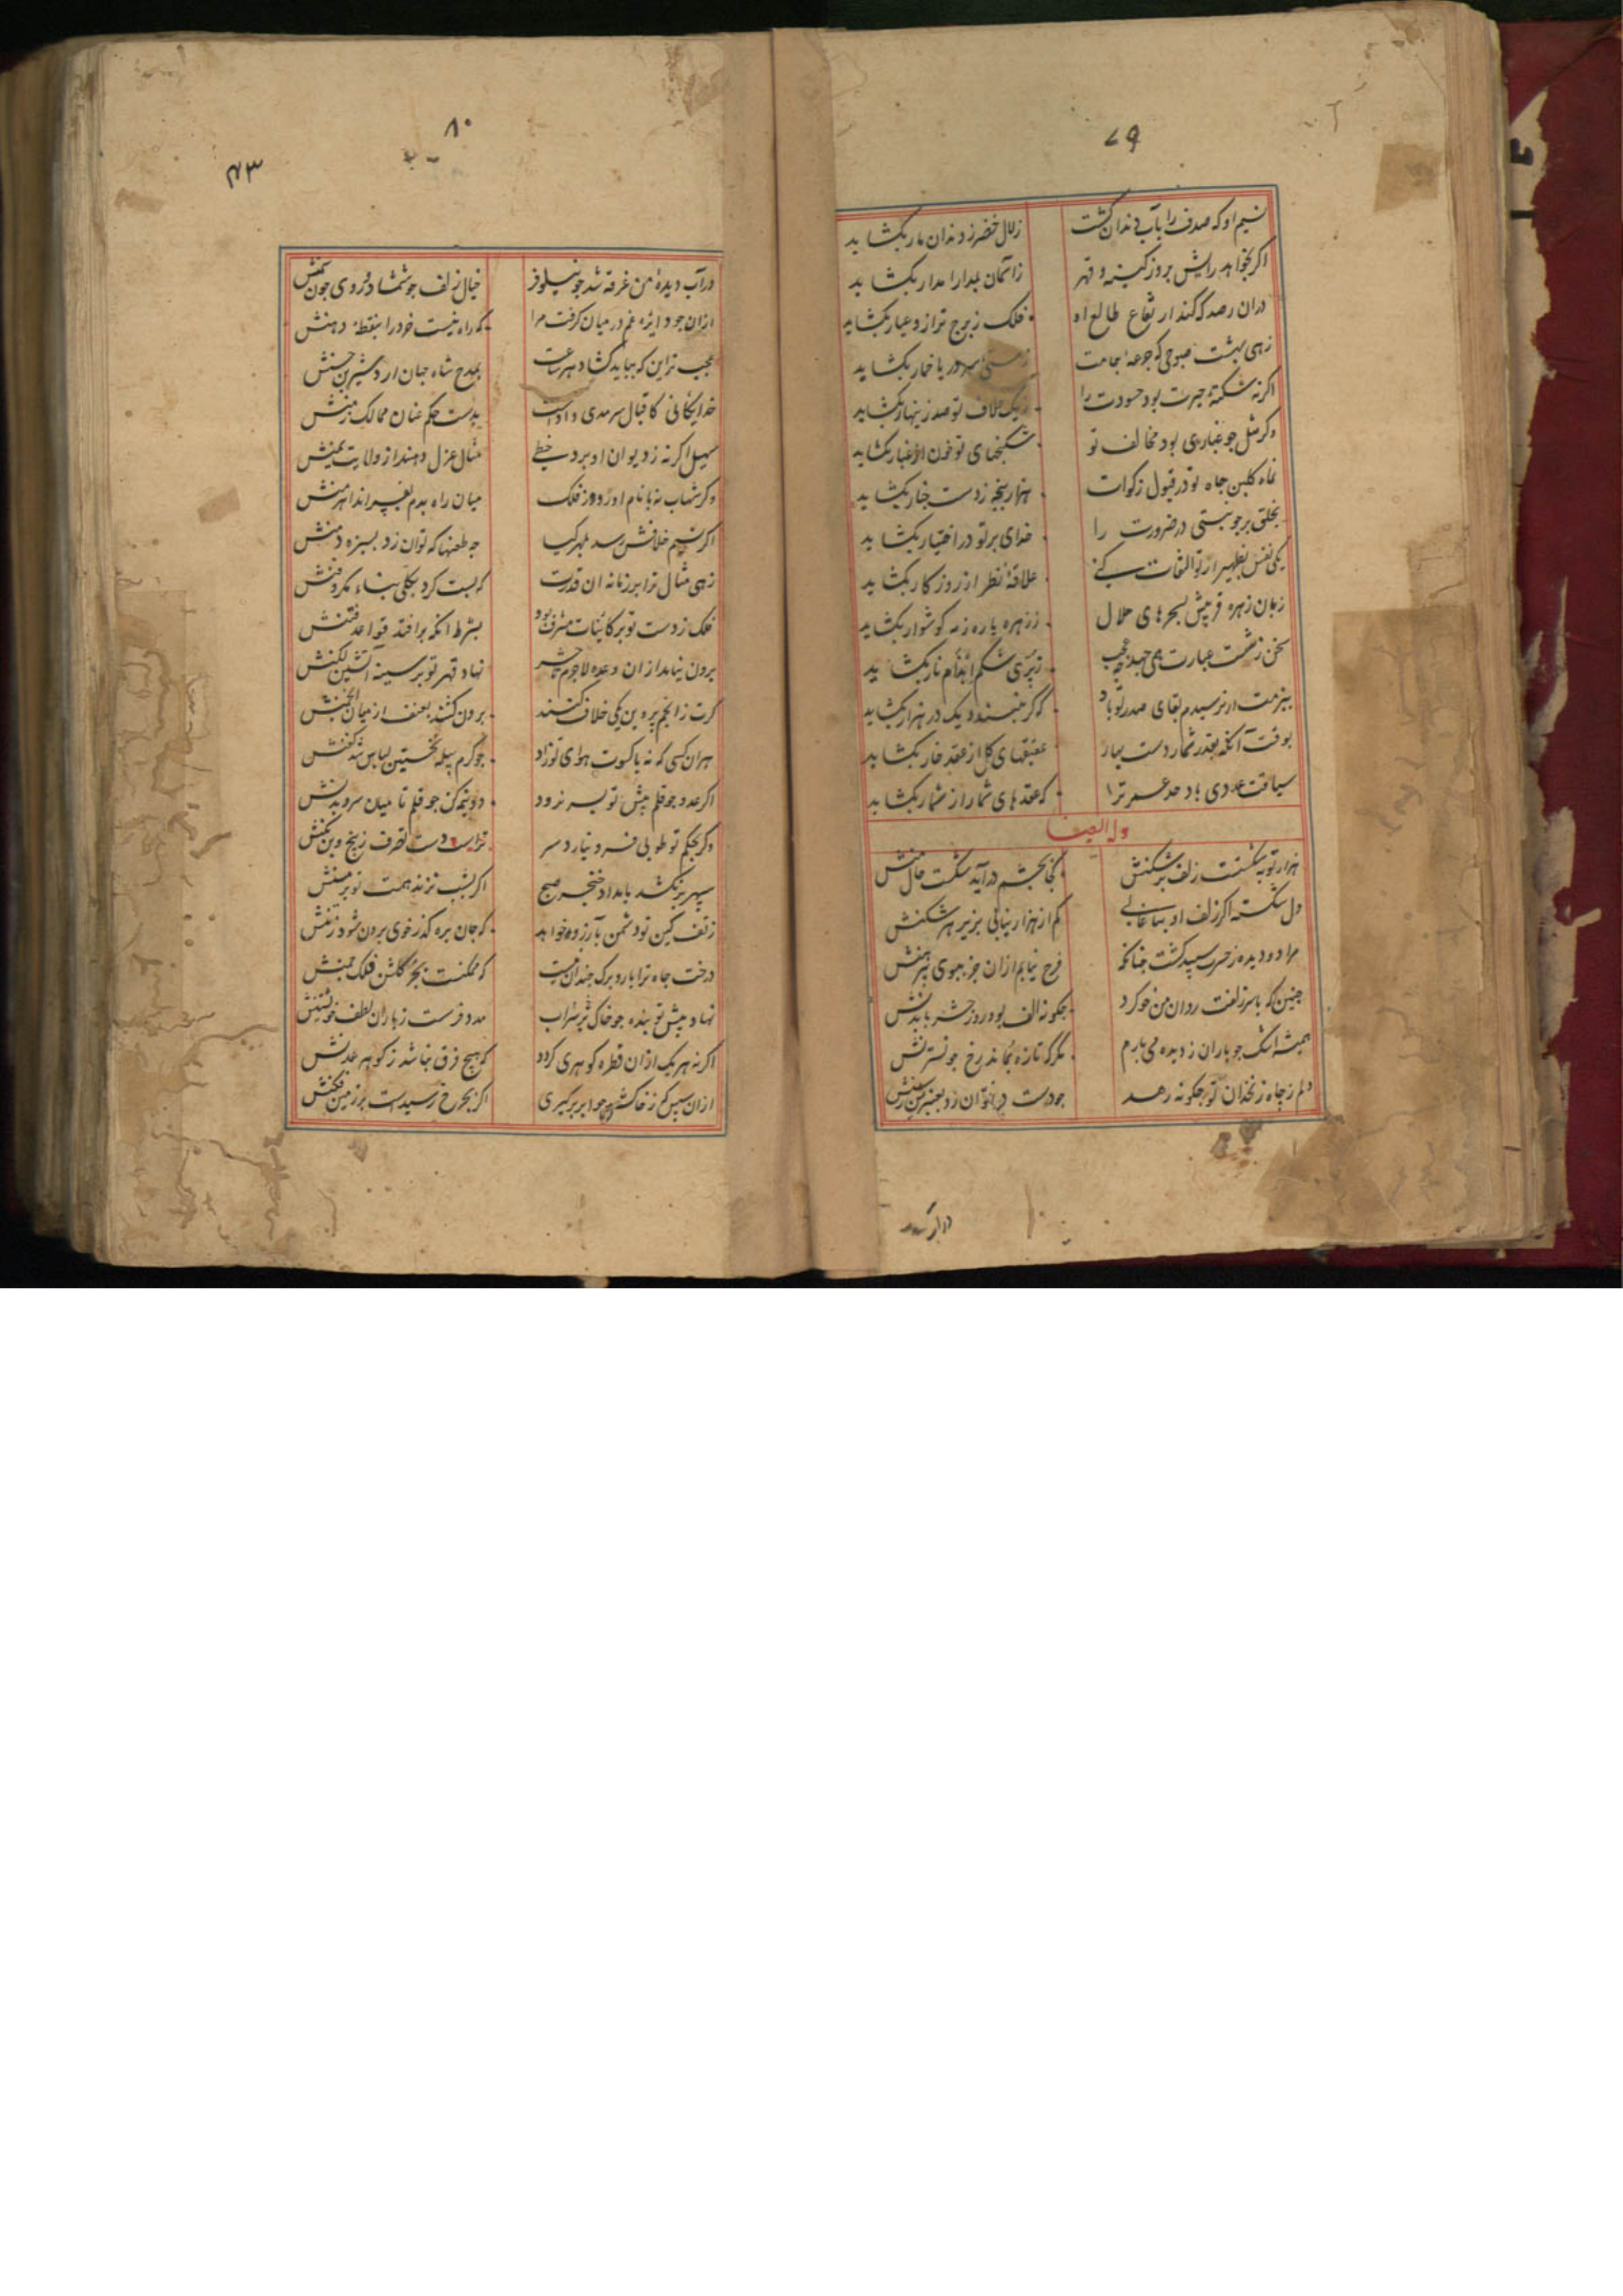 ۷۹
نسیم او که صدف را بآب دندان کشت
زلال خضر ز دندان مار بکشاید
اکر بخواهد رایش بروز کینه و قهر
ز آسمان مدار بکشاید
دران رصد که کند ارتفاع طالع او
فلک ز برج ترازو عیار بکشاید
زهی بهشت صبوحی که جرعه جامت
ز دریا خمار بکشاید
اکر نه شکسته بود حسودت را
ز یک خلاف تو صد زینهار بکشاید
وکر مثل جو غباری بود مخالف تو
تو خون از غبار بکشاید
کلبن جاه تو در قبول زکوات
هزار پنجه ز دست جنار بکشاید
بخلق بر جو ببستی در ضرورت را
خدای بر تو در اختیار بکشاید
یکی نفس بظهیر ار تو التفات کنی
علاقه نظر از روزکار بکشاید
زبان زهره فریبش بسحرهای حلال
ز زهره یاره ز مه کوشوار بکشاید
سخن ز شست عبارت همی جهد جه عجب
ز تیری شکم نار بکشاید
بقای صدر تو باد
که کر ببندد یک در هزار بکشاید
بوقت آنکه بقدر شمار دست بهار
عقیقهای کل از عقد خار بکشاید
سیاقت عددی باد حد عمر ترا
که عقدهای شمار از شمار بکشاید
وله ایضا
هزار توبه شکستست زلف پر شکنش
کجا بچشم در آید شکست حال منش
دل شکسته اکر زلف او بیفشانی
کم از هزار نیابی بزیر هر شکنش
مرا دو دیده ز حسرت سپید کشت جنانکه
فرح نیابم ازان جز ببوی پیرهنش
جنین که با سر زلفت روان من خو کرد
جکونه الف بود روز حشر با بدنش
همیشه اشک جو باران ز دیده می بارم
مکر که تازه بماند رخ جو نسترنش
دلم ز چاه زنخدان تو جکونه رهد
جو دست در نتوان زد بعنبرین رسنش
در آب
۸۰
۴۳
در آب دیده من غرقه شد جو نیلوفر
خیال زلف جو شمشاد و روی جون سمنش
ازان جو دایره غم در میان کرفت مرا
که راه نیست خرد را بنقطه دهنش
عجب تر این که بباید کشاد هر ساعت
بمدح شاه جهان ارد شیر بن حسنش
خدایکانی کاقبال سرمدی دادست
بدست حکم عنان ممالک زمنش
سهیل اکر نه ز دیوان او برد خطی
مثال عزل دهند از ولایت یمنش
وکر شهاب نه با نام او رود ز فلک
میان راه بدم اندر اهرمنش
اکر نسیم خلافش رسد بمهر کیا
جه طعنها که توان زد بسبزه دمنش
زهی مثال ترا بر زمانه ان قدرت
که بست کرد بکلی بناء مکر و فنش
فلک ز دست تو بر کاینات مشرف بود
بشرط انکه بر افتد قواعد فتنش
برون نیامد ازان وعده لاجرم تا حشر
نهاد قهر تو بر سینه آتشین لکنش
کرت ز انجم پروین یکی خلاف کنند
برون کنند بعنف از میان انجمنش
هران کسی که نه با کسوت هوای تو زاد
جو کرم پیله نخستین لباس شد کفنش
اکر عدو جو قلم پیش تو بسر نرود
دو نیمه کن جو قلم تا میان سر و بدنش
وکر بحکم تو طوبی فرو نیارد سر
تراست دست تصرف ز بیخ و بن بکنش
سپهر بر نکشد بامداد خنجر صبح
اکر بشب نزند همت تو بر مسنش
ز تف کین تو دشمن بآرزو خواهد
که جان بره کذر خوی برون شود ز تنش
درخت جاه ترا بار و برک جندان نیست
که ممکنست بجز کلشن فلک جمنش
نهاد پیش تو بنده جو خاک بر تراب
مدد فرست ز باران لطف خویشتنش
اکر نه هر یک ازان قطره کوهری کردد
که هیچ فرق نباشد ز کوهر عدنش
ازان سپس که ز خاکش جو ابر برکیری
اکر بجرخ رسیدست بر زمین فکنش